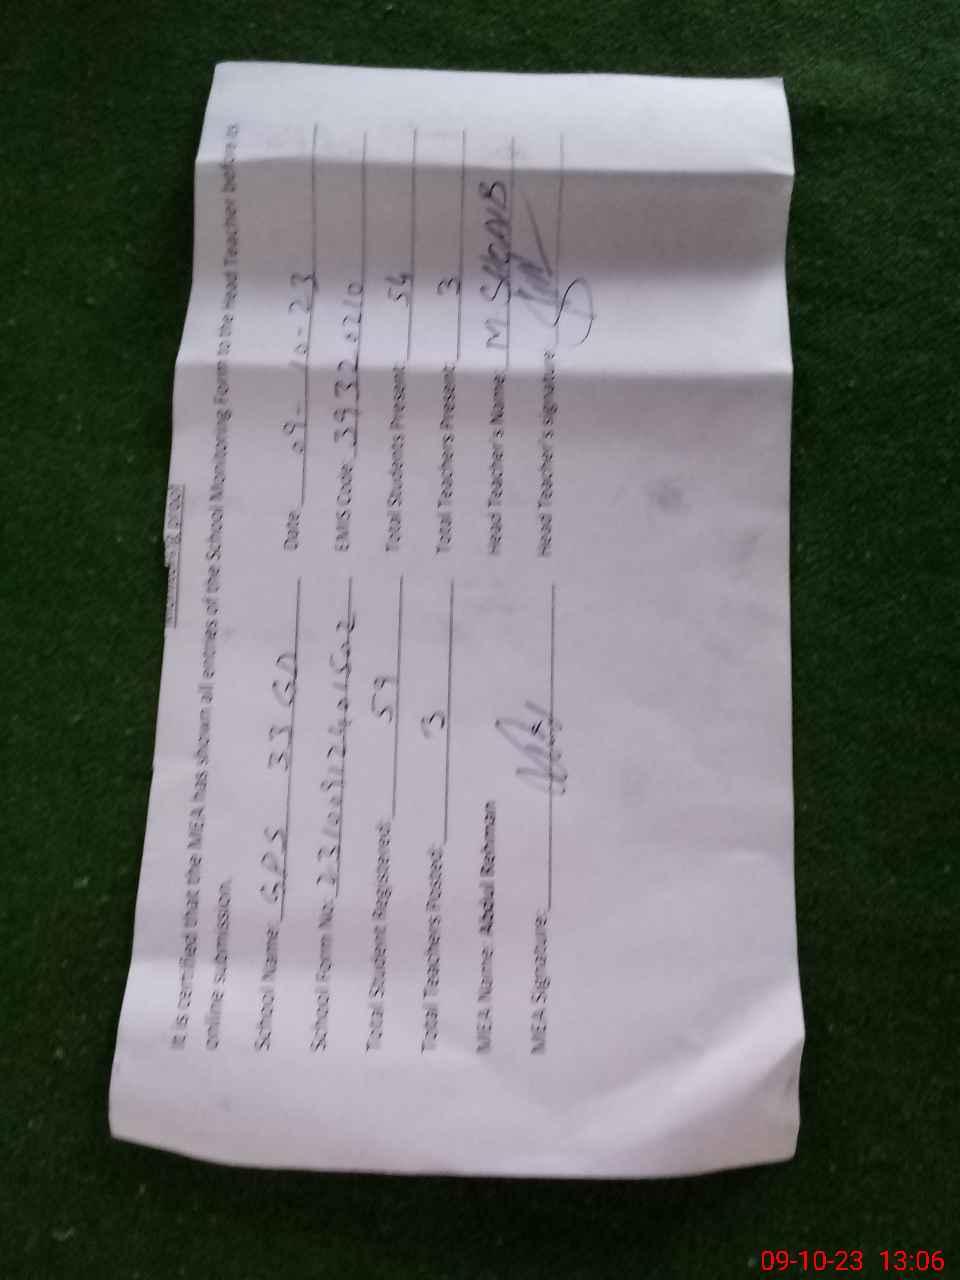 Monitoring proof
It is certified that the MEA has shown all entries of the School Monitoring Form to the Head Teacher before its
online submission.
School Name: GPS 33 GD Date 09-10-23
School Form No: EMIS Code: 39320210
Total Student Registered: 59 Total Students Present: 54
Total Teachers Posted: 3 Total Teachers Present: 3
MEA Name: Abdul Rehman Head Teacher's Name: M. SHOAIB
MEA Signature: Head Teacher's signature:
09-10-23 13:06